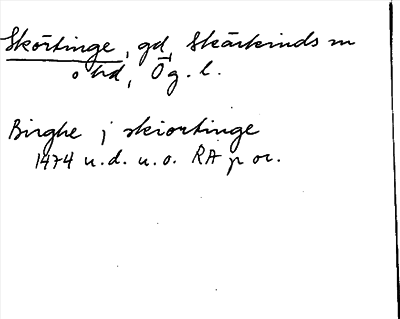 Skörtinge, gd, Skärkinds sn
o hd, Ög. l.
Birghe j skiortinge
1474 u.d. u.o. RA p or.